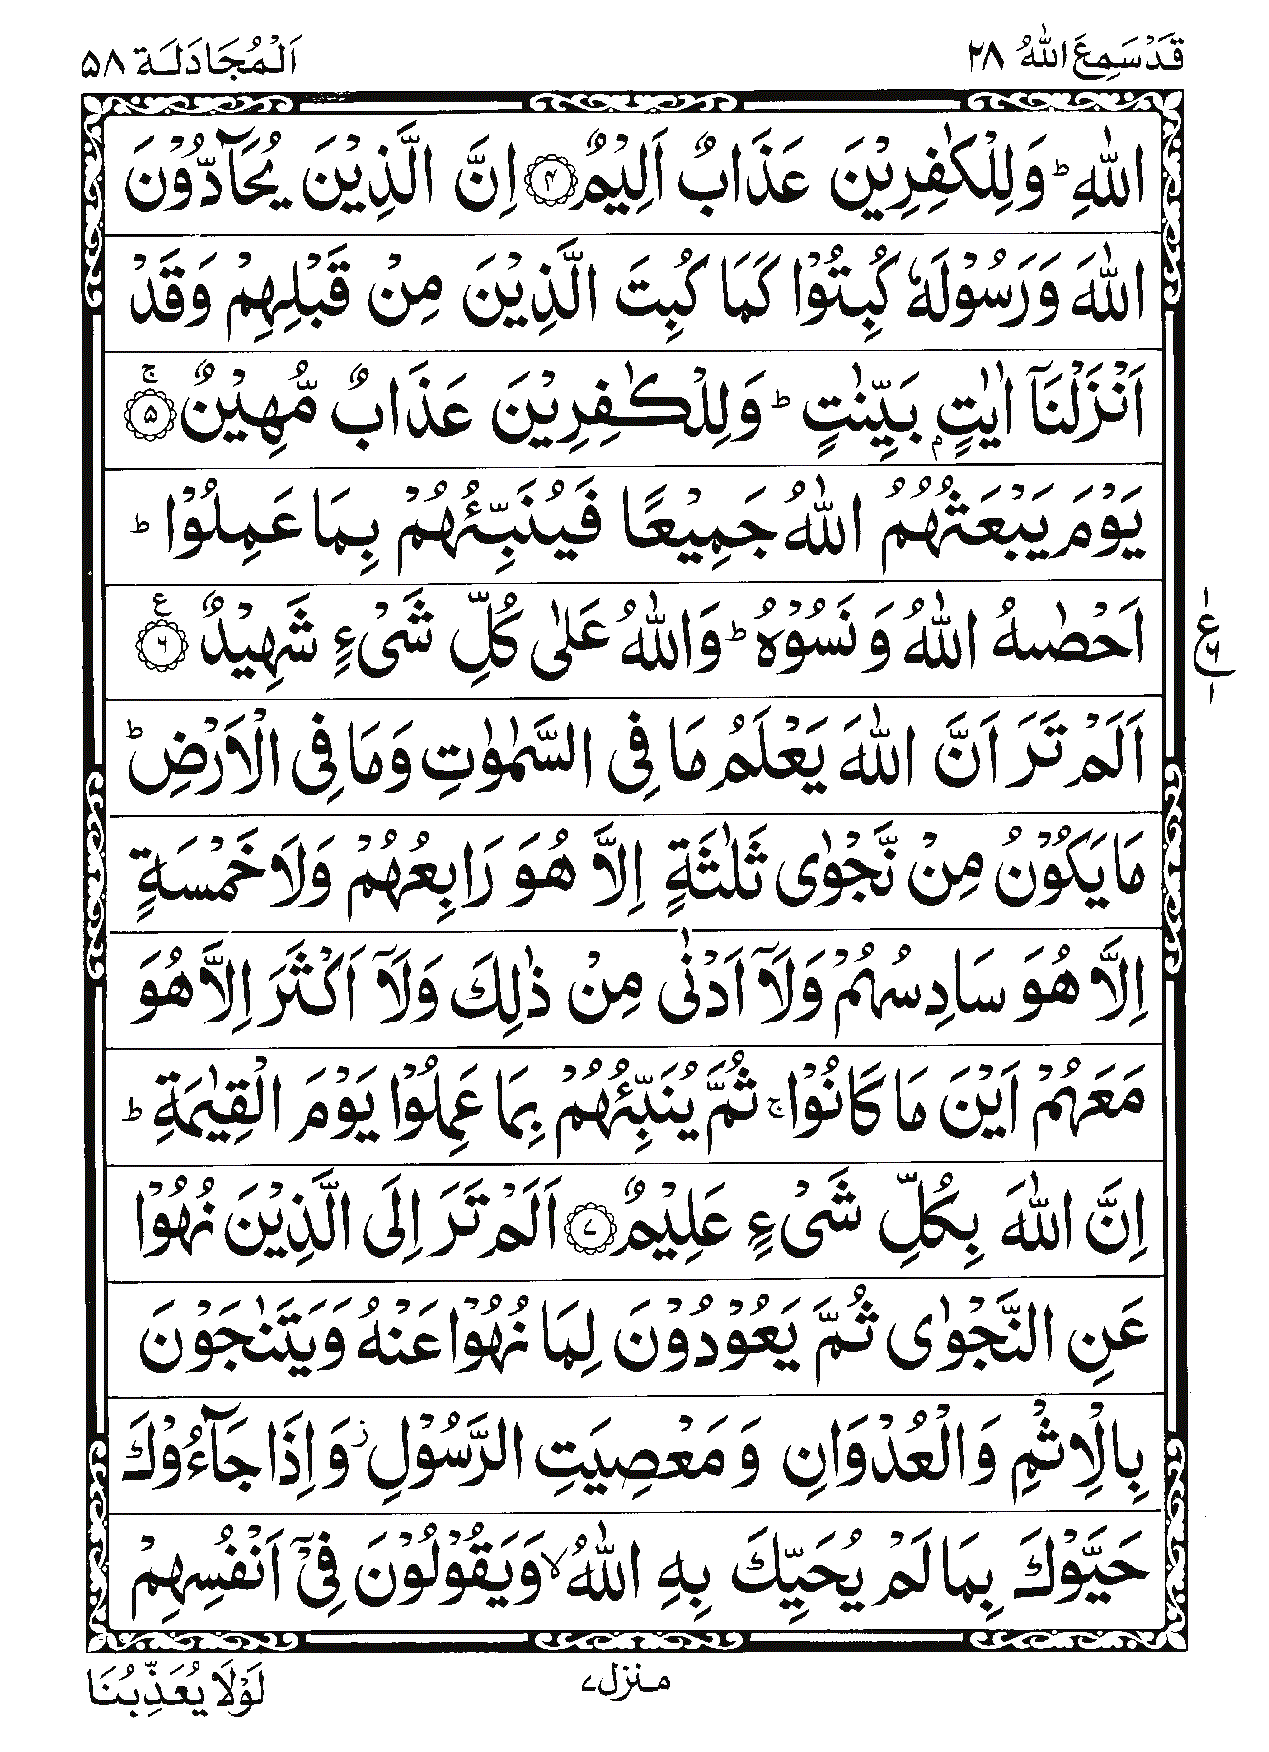 قَدْ سَمِعَ اللّٰهُ ٢٨
اَلْمُجَادَلَة ٥٨
اللّٰهِ ؕ وَلِلْكٰفِرِيْنَ عَذَابٌ اَلِيْمٌ ۝۴ اِنَّ الَّذِيْنَ يُحَآدُّوْنَ
اللّٰهَ وَرَسُوْلَهٗ كُبِتُوْا كَمَا كُبِتَ الَّذِيْنَ مِنْ قَبْلِهِمْ وَقَدْ
اَنْزَلْنَاۤ اٰيٰتٍۭ بَيِّنٰتٍ ؕ وَلِلْكٰفِرِيْنَ عَذَابٌ مُّهِيْنٌ ۝۵ ۚ
يَوْمَ يَبْعَثُهُمُ اللّٰهُ جَمِيْعًا فَيُنَبِّئُهُمْ بِمَا عَمِلُوْا ؕ
اَحْصٰىهُ اللّٰهُ وَ نَسُوْهُ ؕ وَاللّٰهُ عَلٰى كُلِّ شَیْءٍ شَهِيْدٌ ۝۶ ع
ع ١ ۶ ١
اَلَمْ تَرَ اَنَّ اللّٰهَ يَعْلَمُ مَا فِی السَّمٰوٰتِ وَمَا فِی الْاَرْضِ ؕ
مَا يَكُوْنُ مِنْ نَّجْوٰى ثَلٰثَةٍ اِلَّا هُوَ رَابِعُهُمْ وَلَا خَمْسَةٍ
اِلَّا هُوَ سَادِسُهُمْ وَلَاۤ اَدْنٰى مِنْ ذٰلِكَ وَلَاۤ اَكْثَرَ اِلَّا هُوَ
مَعَهُمْ اَيْنَ مَا كَانُوْا ۚ ثُمَّ يُنَبِّئُهُمْ بِمَا عَمِلُوْا يَوْمَ الْقِيٰمَةِ ؕ
اِنَّ اللّٰهَ بِكُلِّ شَیْءٍ عَلِيْمٌ ۝۷ اَلَمْ تَرَ اِلَى الَّذِيْنَ نُهُوْا
عَنِ النَّجْوٰى ثُمَّ يَعُوْدُوْنَ لِمَا نُهُوْا عَنْهُ وَيَتَنٰجَوْنَ
بِالْاِثْمِ وَالْعُدْوَانِ وَ مَعْصِيَتِ الرَّسُوْلِ ز وَ اِذَا جَآءُوْكَ
حَيَّوْكَ بِمَا لَمْ يُحَيِّكَ بِهِ اللّٰهُ ۙ وَيَقُوْلُوْنَ فِیْۤ اَنْفُسِهِمْ
منزل ٧
لَوْلَا يُعَذِّبُنَا